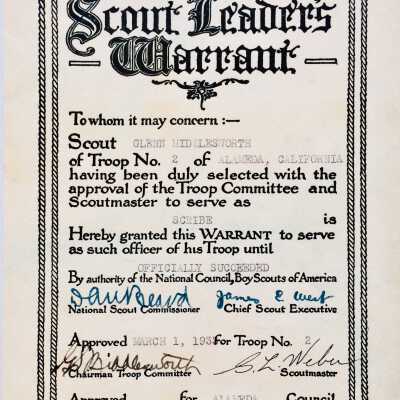 Scout Leader's
Warrant
To whom it may concern :—
Scout GLENN MIDDLESWORTH
of Troop No. 2 of ALAMEDA, CALIFORNIA
having been duly selected with the
approval of the Troop Committee and
Scoutmaster to serve as
SCRIBE is
Hereby granted this WARRANT to serve
as such officer of his Troop until
OFFICIALLY SUCCEEDED
By authority of the National Council, Boy Scouts of America
Dan Beard James E. West
National Scout Commissioner Chief Scout Executive
Approved MARCH 1, for Troop No. 2
Chairman Troop Committee Scoutmaster
Approved for ALAMEDA Council